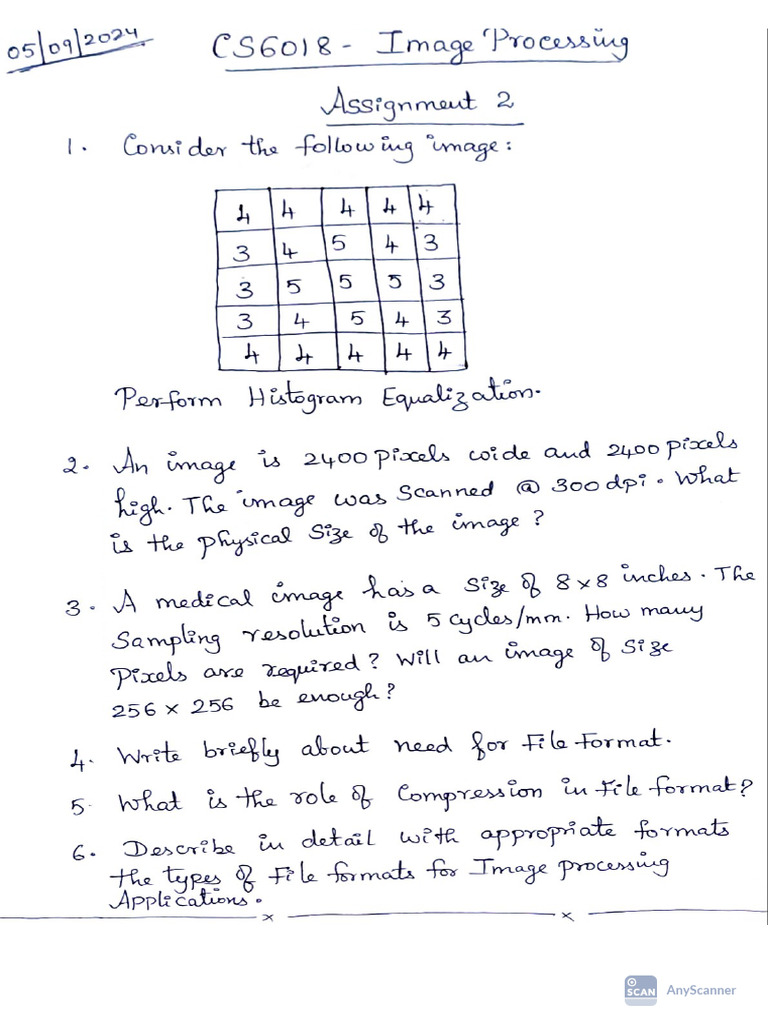 05/09/2024
CS6018 - Image Processing
Assignment 2
1. Consider the following image:
4 4 4 4 4
3 4 5 4 3
3 5 5 5 3
3 4 5 4 3
4 4 4 4 4
Perform Histogram Equalization.
2. An image is 2400 pixels wide and 2400 pixels
high. The image was scanned @ 300 dpi. What
is the physical size of the image?
3. A medical image has a size of 8 x 8 inches. The
Sampling resolution is 5 cycles/mm. How many
pixels are required? Will an image of size
256 x 256 be enough?
4. Write briefly about need for File Format.
5. What is the role of Compression in File format?
6. Describe in detail with appropriate formats
the types of File formats for Image processing
Applications.
x x
SCAN AnyScanner